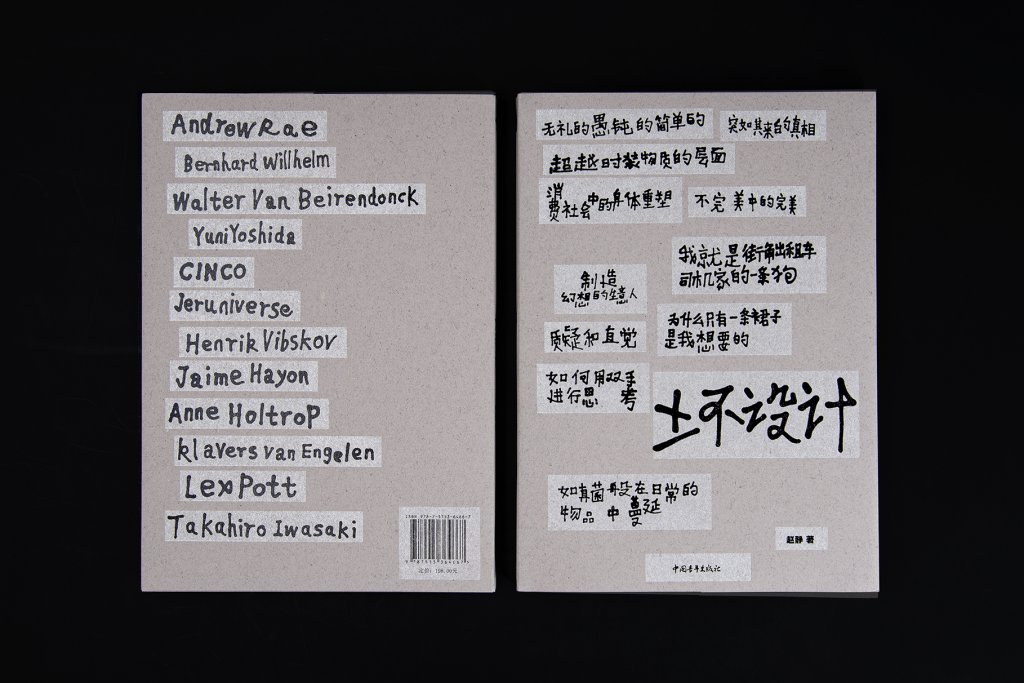 AndrewRae
Bernhard Willhelm
Walter Van Beirendonck
YuniYoshida
CINCO
Jeruniverse
Henrik Vibskov
Jaime Hayon
Anne Holtrop
klavers van Engelen
LexPott
Takahiro Iwasaki
ISBN 978-7-5153-6406-7
9 787515 364067 >
定价：198.00元
无礼的愚钝的简单的
突如其来的真相
超越时装物质的层面
消
费社会中的身体重塑
不完美中的完美
我就是街角出租车
司机家的一条狗
制造
幻想的生意人
质疑和直觉
为什么只有一条裙子
是我想要的
如何用双手
进行思考
土不设计
如真菌般在日常的
物品中蔓延
赵静 著
中国青年出版社